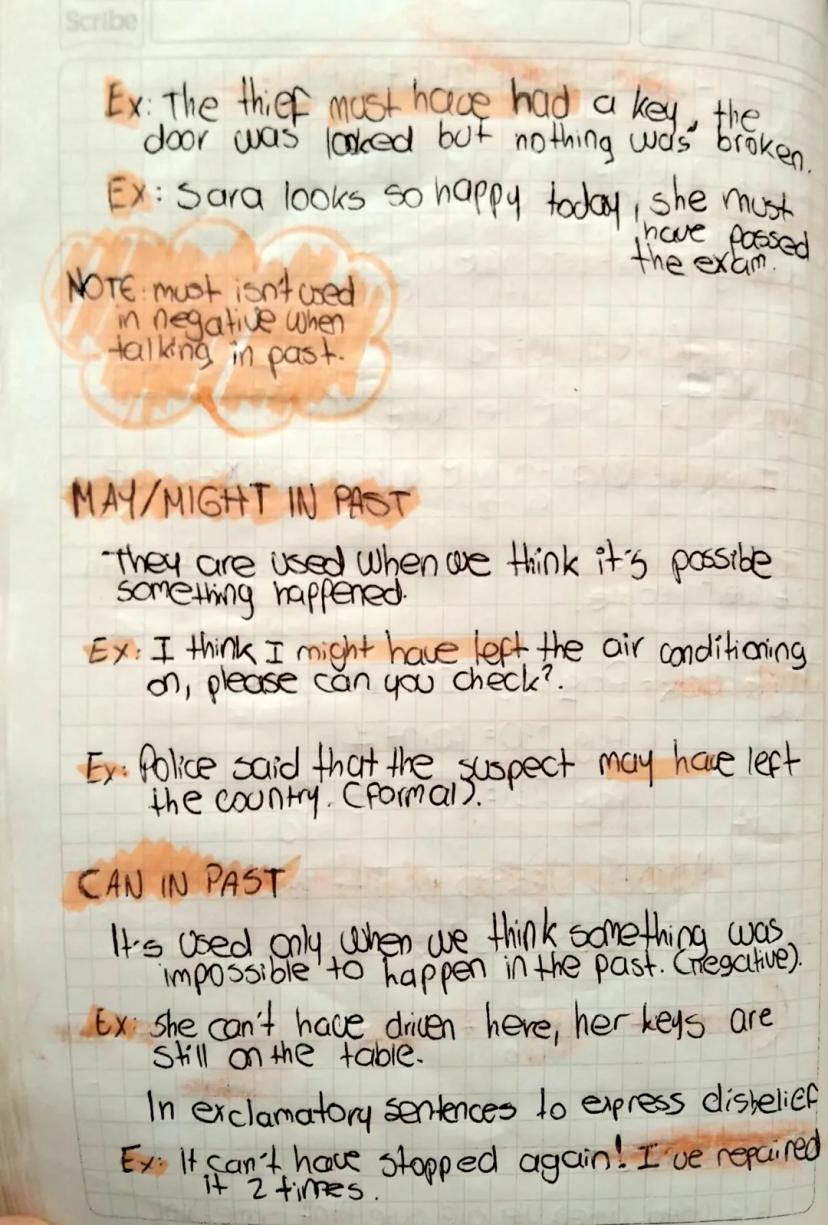 Scribe
Ex: The thief must have had a key, the
door was locked but nothing was broken.
Ex: Sara looks so happy today, she must
have passed
the exam.
NOTE: must isn't used
in negative when
talking in past.
MAY/MIGHT IN PAST
They are used when we think it's possible
something happened.
Ex: I think I might have left the air conditioning
on, please can you check?.
Ex: Police said that the suspect may have left
the country. (formal).
CAN IN PAST
It's used only when we think something was
impossible to happen in the past. (negative).
Ex: she can't have driven here, her keys are
still on the table.
In exclamatory sentences to express disbelief
Ex: It can't have stopped again! I've repaired
it 2 times.